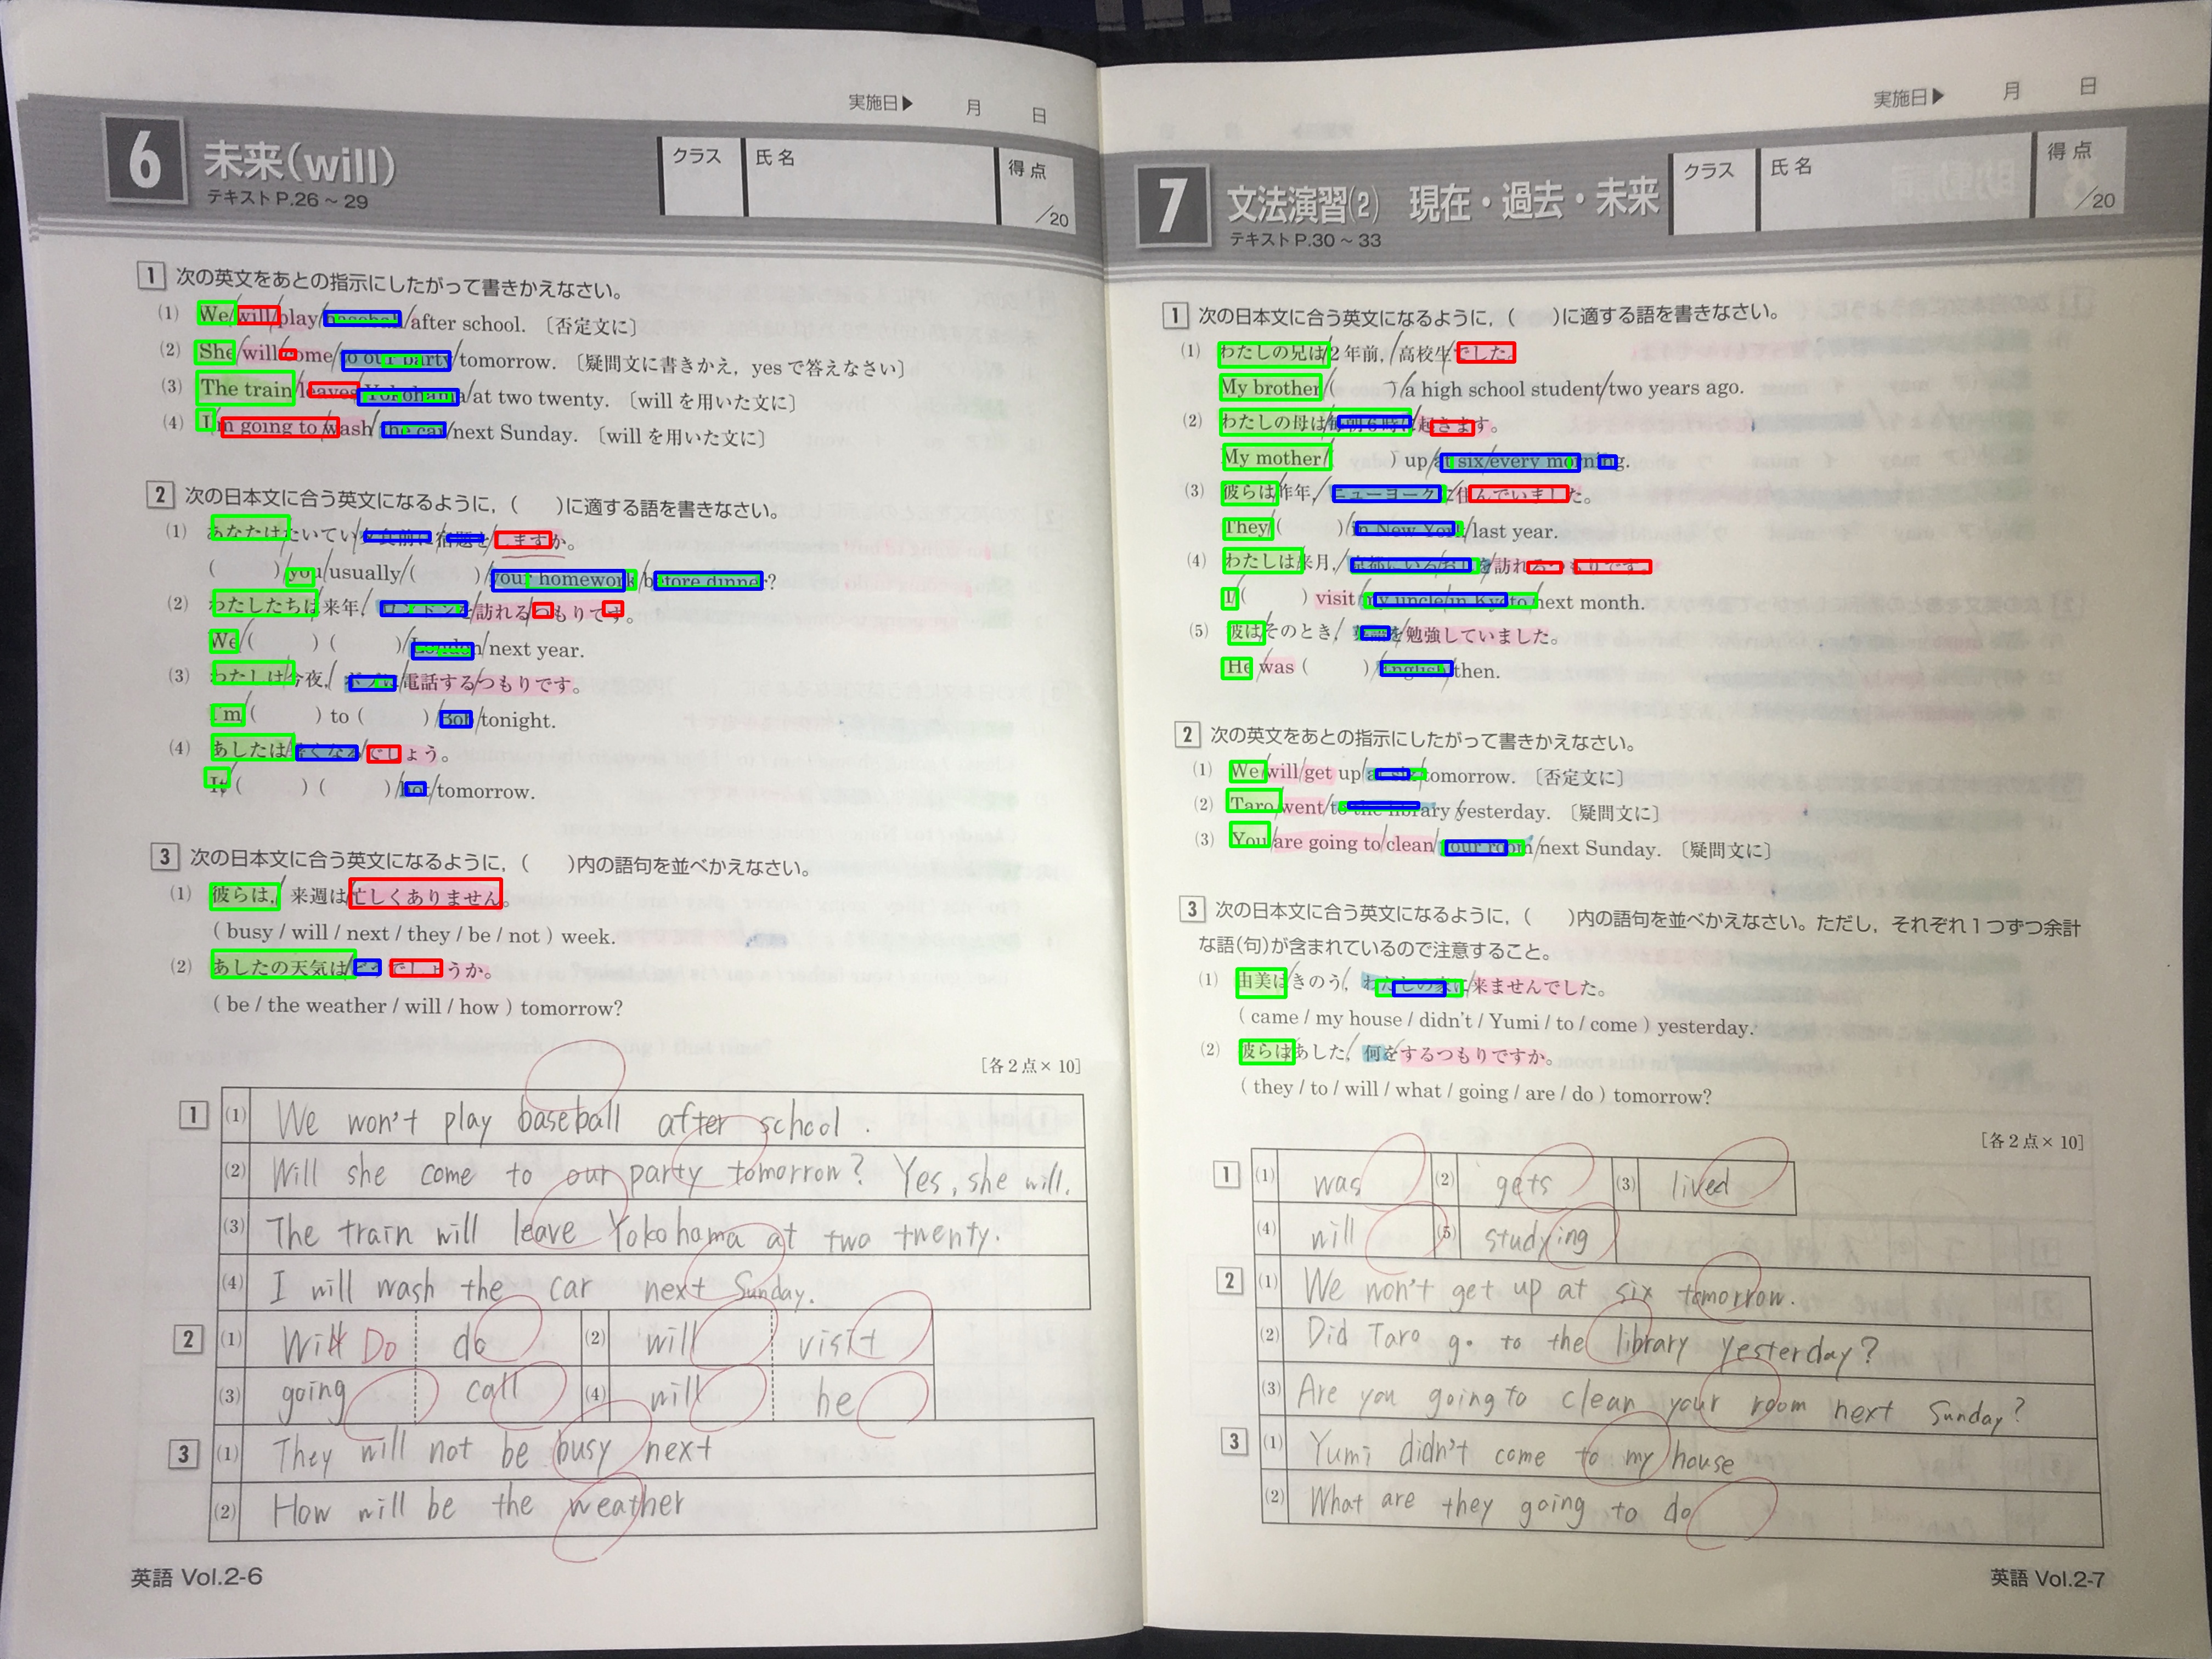 実施日▶ 月 日
6 未来(will)
テキストP.26～29
クラス 氏名 得点 /20
1 次の英文をあとの指示にしたがって書きかえなさい。
(1) We/will/play/baseball/after school. 〔否定文に〕
(2) She/will/come/to our party/tomorrow. 〔疑問文に書きかえ，yesで答えなさい〕
(3) The train/leaves/Yokohama/at two twenty. 〔willを用いた文に〕
(4) I'm going to/wash/the car/next Sunday. 〔willを用いた文に〕
2 次の日本文に合う英文になるように，( )に適する語を書きなさい。
(1) あなたはたいてい/夕食前に/宿題を/しますか。
( )/you/usually/( )/your homework/before dinner?
(2) わたしたちは/来年，/ロンドンを/訪れる/つもりです。
We/( ) ( )/London/next year.
(3) わたしは/今夜，/ボブに/電話する/つもりです。
I'm/( ) to ( )/Bob/tonight.
(4) あしたは/暑くなる/でしょう。
It/( ) ( )/hot/tomorrow.
3 次の日本文に合う英文になるように，( )内の語句を並べかえなさい。
(1) 彼らは，/来週は/忙しくありません。
( busy / will / next / they / be / not ) week.
(2) あしたの天気は/どう/でしょうか。
( be / the weather / will / how ) tomorrow?
[各2点×10]
1 (1) We won't play baseball after school .
(2) Will she come to our party tomorrow? Yes, she will.
(3) The train will leave Yokohama at two twenty.
(4) I will wash the car next Sunday.
2 (1) Will Do do (2) will visit
(3) going call (4) will be
3 (1) They will not be busy next
(2) How will be the weather
英語 Vol.2-6
実施日▶ 月 日
7 文法演習(2) 現在・過去・未来
テキストP.30～33
クラス 氏名 得点 /20
1 次の日本文に合う英文になるように，( )に適する語を書きなさい。
(1) わたしの兄は/2年前，/高校生/でした。
My brother/( )/a high school student/two years ago.
(2) わたしの母は/毎朝6時に/起きます。
My mother/( ) up/at six/every morning.
(3) 彼らは/昨年，/ニューヨークに/住んでいました。
They/( )/in New York/last year.
(4) わたしは/来月，/京都にいるおじを/訪れる/つもりです。
I/( ) visit/my uncle/in Kyoto/next month.
(5) 彼は/そのとき，/英語を/勉強していました。
He/was ( )/English/then.
2 次の英文をあとの指示にしたがって書きかえなさい。
(1) We/will/get up/at six/tomorrow. 〔否定文に〕
(2) Taro/went/to the library/yesterday. 〔疑問文に〕
(3) You/are going to/clean/your room/next Sunday. 〔疑問文に〕
3 次の日本文に合う英文になるように，( )内の語句を並べかえなさい。ただし，それぞれ1つずつ余計
な語(句)が含まれているので注意すること。
(1) 由美は/きのう，/わたしの家に/来ませんでした。
( came / my house / didn't / Yumi / to / come ) yesterday.
(2) 彼らは/あした，/何を/するつもりですか。
( they / to / will / what / going / are / do ) tomorrow?
[各2点×10]
1 (1) was (2) gets (3) lived
(4) will (5) studying
2 (1) We won't get up at six tomorrow.
(2) Did Taro go to the library yesterday?
(3) Are you going to clean your room next Sunday?
3 (1) Yumi didn't come to my house
(2) What are they going to do
英語 Vol.2-7